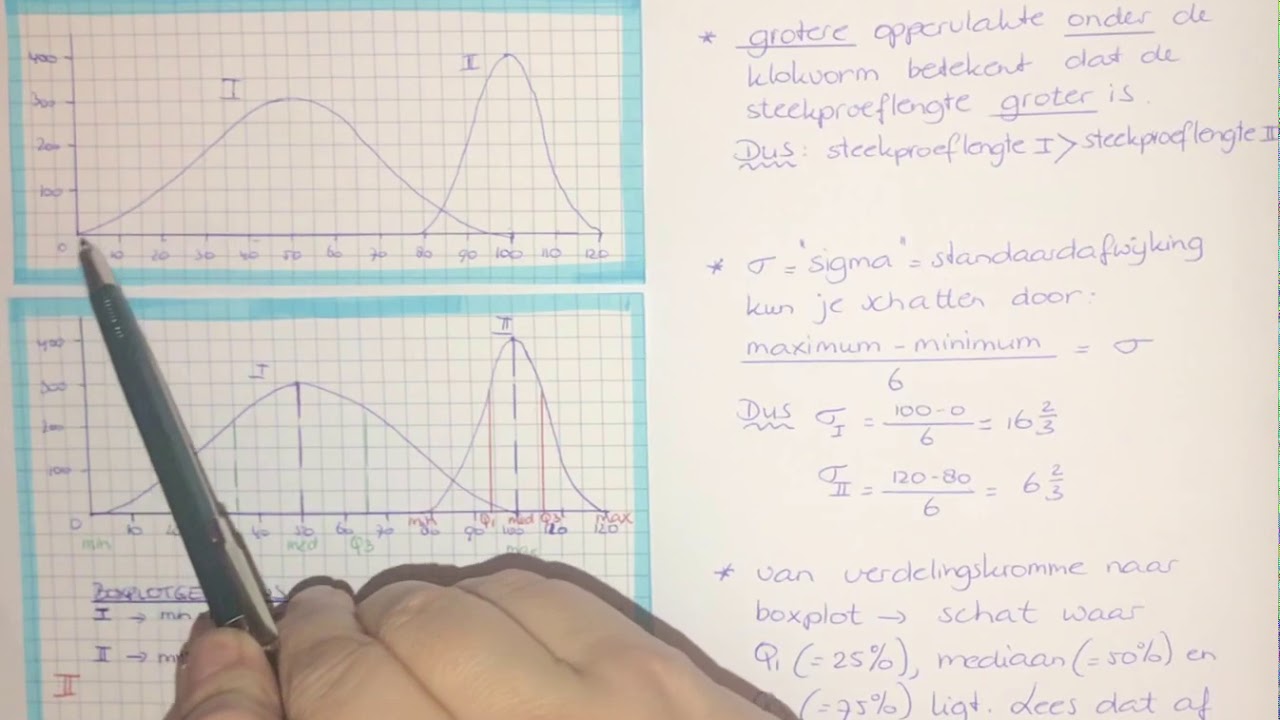 400
300
200
100
I
II
0 10 20 30 40 50 60 70 80 90 100 110 120
400
300
200
100
I
II
0 10 40 50 60 70 80 90 100 120 120
min med Q3
min Q1 med Q3 max
I → min
II →
II
* grotere oppervlakte onder de
klokvorm betekent dat de
steekproeflengte groter is.
Dus: steekproeflengte I > steekproeflengte II
* σ = "sigma" = standaardafwijking
kun je schatten door:
maximum - minimum / 6 = σ
Dus σ I = 100-0 / 6 = 16 2/3
σ II = 120-80 / 6 = 6 2/3
* van verdelingskromme naar
boxplot → schat waar
Q1 (=25%), mediaan (=50%) en
(=75%) ligt. Lees dat af